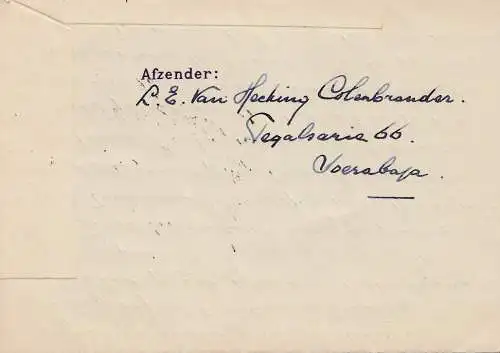 Afzender:
L. E. Van Hecking Colenbrander.
Tegalsarie 66.
Soerabaja.